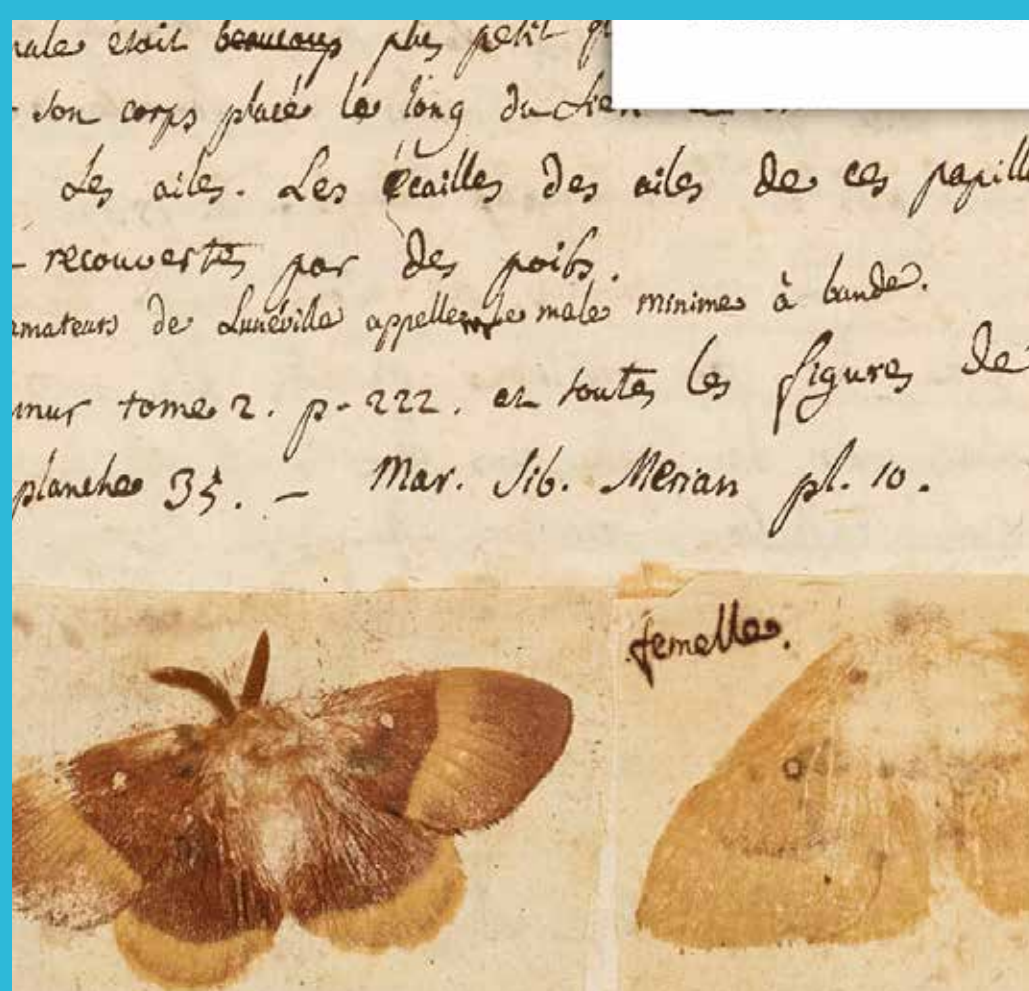 male étoit beaucoup plus petit
son corps placé le long du
Les ailes. Les écailles des ailes de ces papill
recouvertes par des poils.
amateurs de Lunéville appellent le male minime à bande.
mur tome 2. p. 222. et toutes les figures de
planche 35. — Mar. Sib. Merian pl. 10.
femelle.